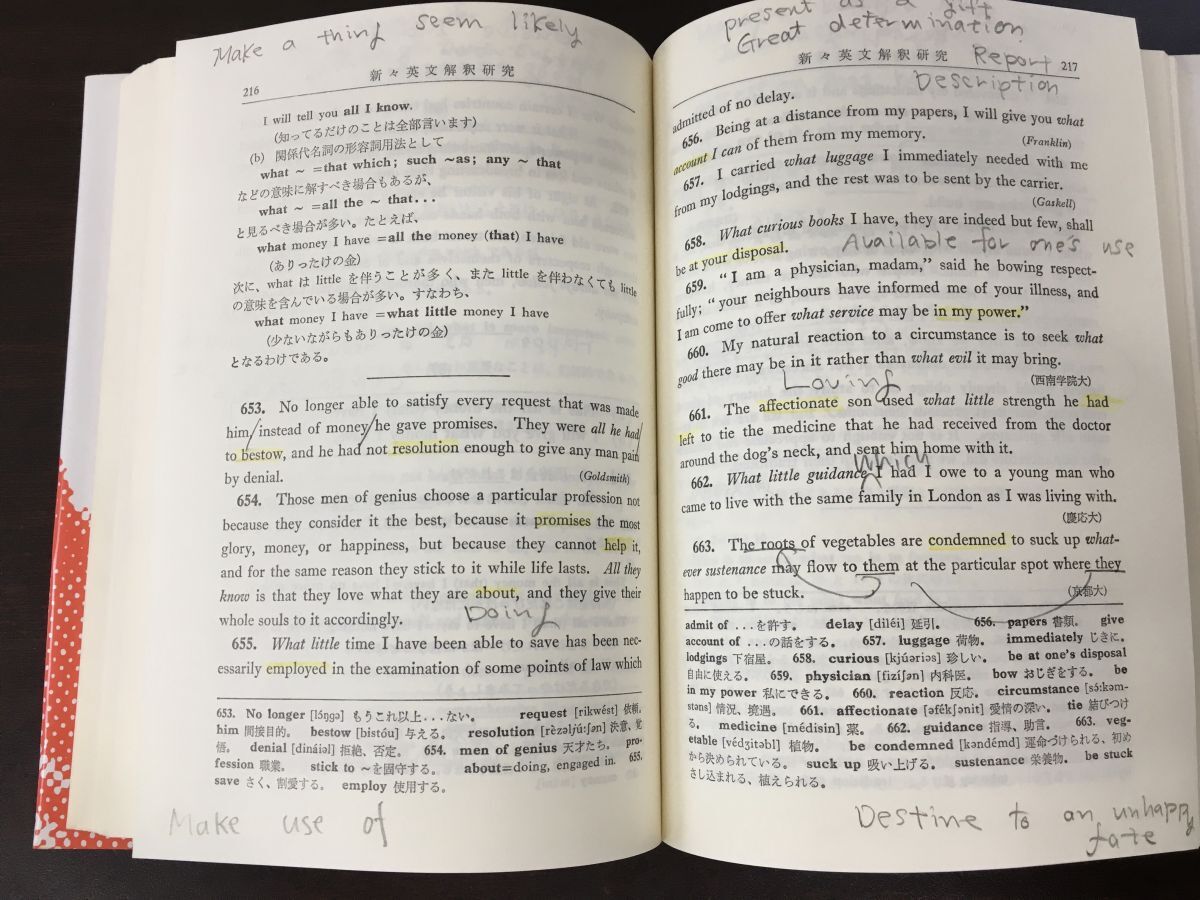 Make a thing seem likely
216
新々英文解釈研究
I will tell you all I know.
(知ってるだけのことは全部言います)
(b) 関係代名詞の形容詞用法として
what ~ =that which; such ~as; any ~ that
などの意味に解すべき場合もあるが、
what ~ =all the ~ that...
と見るべき場合が多い。たとえば、
what money I have =all the money (that) I have
(ありったけの金)
次に、what は little を伴うことが多く、また little を伴わなくても little
の意味を含んでいる場合が多い。すなわち、
what money I have =what little money I have
(少ないながらもありったけの金)
となるわけである。
653. No longer able to satisfy every request that was made
him, instead of money he gave promises. They were all he had
to bestow, and he had not resolution enough to give any man pain
by denial. (Goldsmith)
654. Those men of genius choose a particular profession not
because they consider it the best, because it promises the most
glory, money, or happiness, but because they cannot help it,
and for the same reason they stick to it while life lasts. All they
know is that they love what they are about, and they give their
whole souls to it accordingly.
Doing
655. What little time I have been able to save has been nec-
essarily employed in the examination of some points of law which
653. No longer [lɔ́ŋgə] もうこれ以上...ない。 request [rikwést] 依頼。
him 間接目的。 bestow [bistóu] 与える。 resolution [rèzəljúːʃən] 決意、覚
悟。 denial [dináiəl] 拒絶、否定。 654. men of genius 天才たち。 pro-
fession 職業。 stick to ~を固守する。 about=doing, engaged in. 655.
save さく、割愛する。 employ 使用する。
Make use of
present as a gift
Great determination
新々英文解釈研究
Report
217
Description
admitted of no delay.
656. Being at a distance from my papers, I will give you what
account I can of them from my memory. (Franklin)
657. I carried what luggage I immediately needed with me
from my lodgings, and the rest was to be sent by the carrier.
(Gaskell)
658. What curious books I have, they are indeed but few, shall
be at your disposal.
Available for one's use
659. “I am a physician, madam,” said he bowing respect-
fully; “your neighbours have informed me of your illness, and
I am come to offer what service may be in my power.”
660. My natural reaction to a circumstance is to seek what
good there may be in it rather than what evil it may bring.
(西南学院大)
Loving
661. The affectionate son used what little strength he had
left to tie the medicine that he had received from the doctor
around the dog's neck, and sent him home with it.
which
662. What little guidance I had I owe to a young man who
came to live with the same family in London as I was living with.
(慶応大)
663. The roots of vegetables are condemned to suck up what-
ever sustenance may flow to them at the particular spot where they
happen to be stuck. (京都大)
admit of ...を許す。 delay [diléi] 延引。 656. papers 書類。 give
account of ...の話をする。 657. luggage 荷物。 immediately じきに。
lodgings 下宿屋。 658. curious [kjúəriəs] 珍しい。 be at one's disposal
自由に使える。 659. physician [fizíʃən] 内科医。 bow おじぎをする。 be
in my power 私にできる。 660. reaction 反応。 circumstance [sə́ːkəm-
stəns] 情況、境遇。 661. affectionate [əfékʃənit] 愛情の深い。 tie 結びつけ
る。 medicine [médisin] 薬。 662. guidance 指導、助言。 663. veg-
etable [védʒitəbl] 植物。 be condemned [kəndémd] 運命づけられる、初め
から決められている。 suck up 吸い上げる。 sustenance 栄養物。 be stuck
さし込まれる、植えられる。
Destine to an unhappy
fate